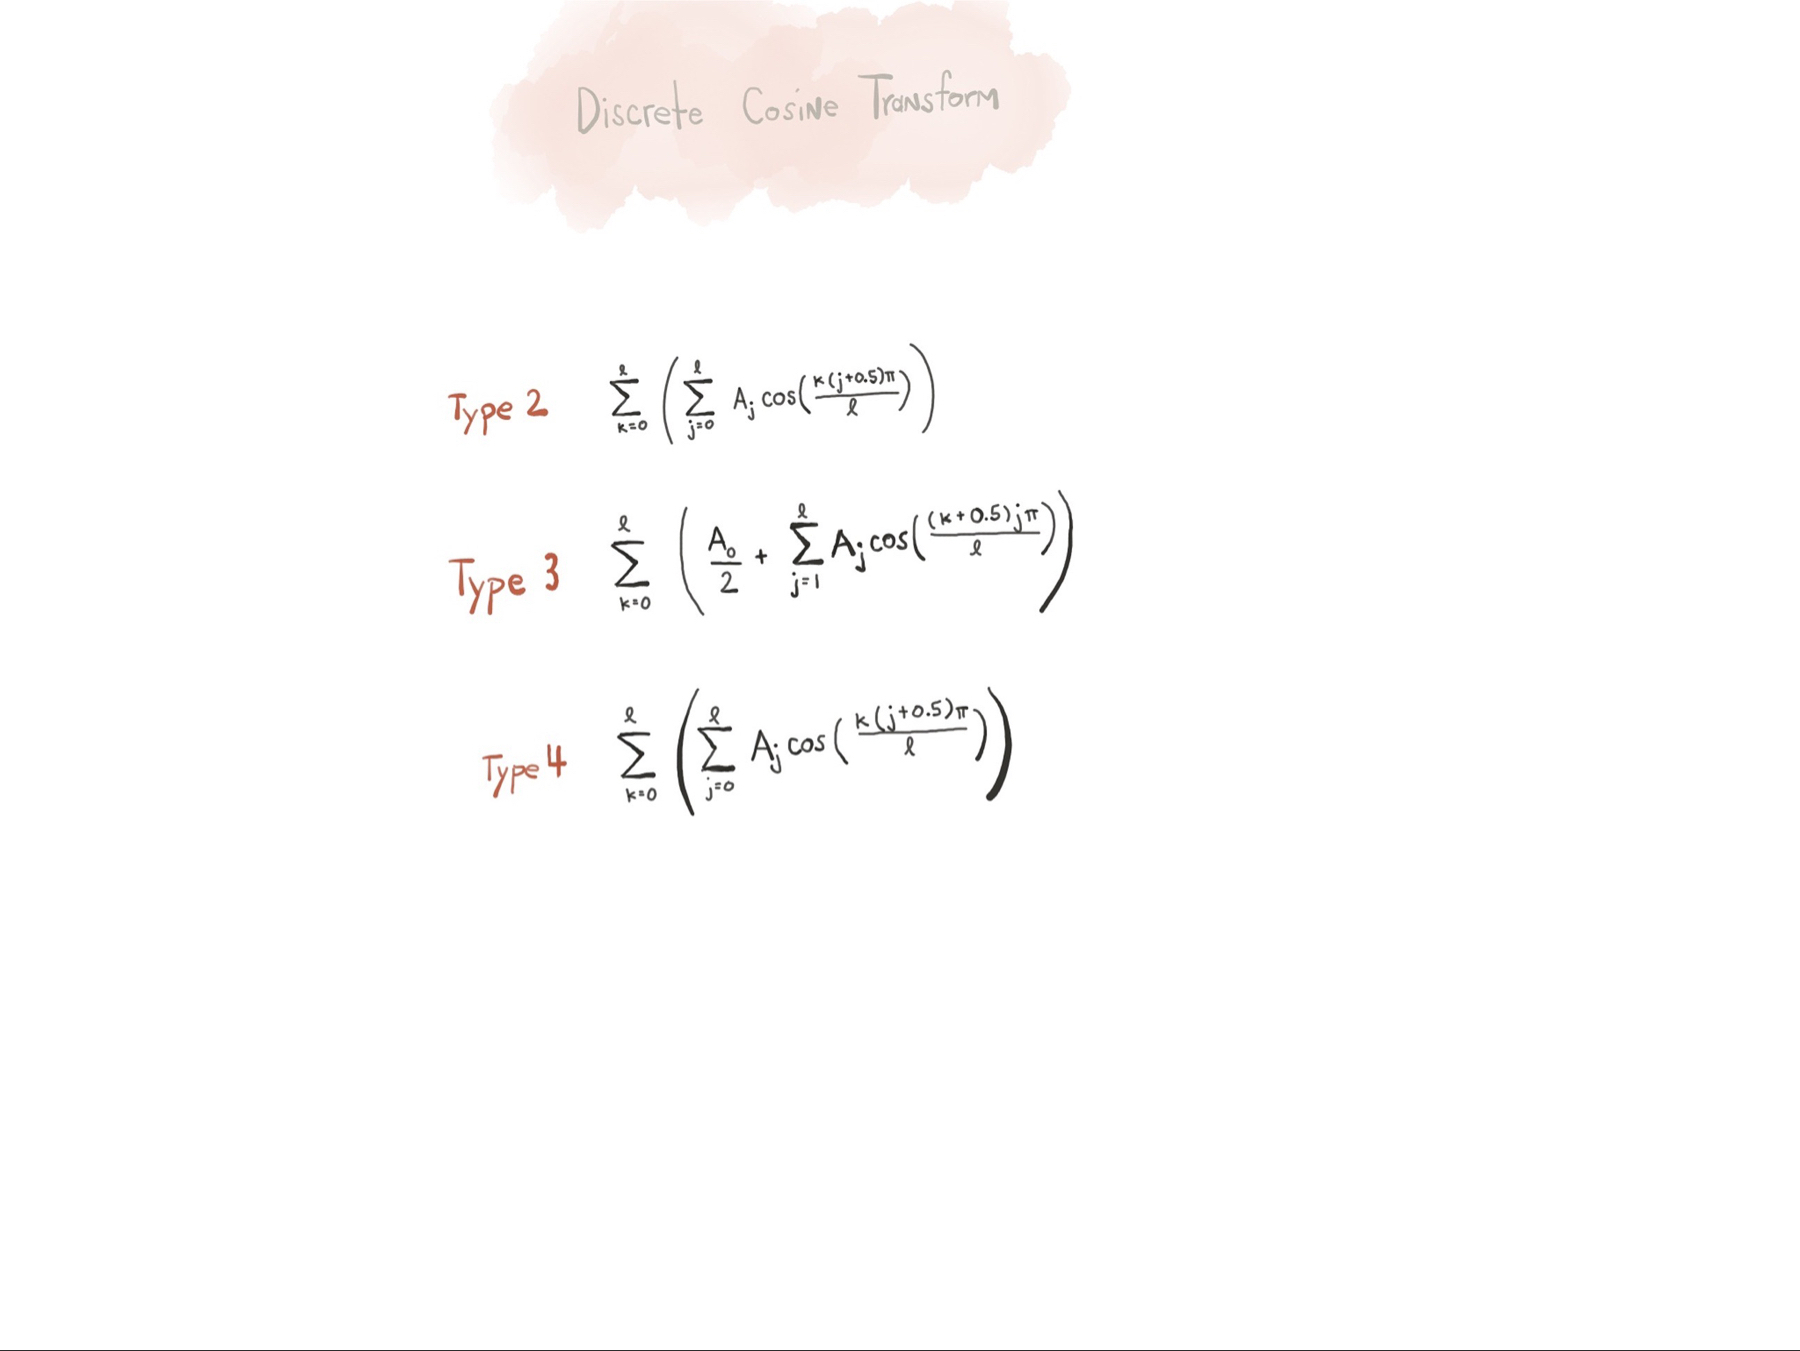 Discrete Cosine Transform
Type 2 \sum_{k=0}^{\ell} \left( \sum_{j=0}^{\ell} A_j \cos\left( \frac{k(j+0.5)\pi}{\ell} \right) \right)
Type 3 \sum_{k=0}^{\ell} \left( \frac{A_0}{2} + \sum_{j=1}^{\ell} A_j \cos\left( \frac{(k+0.5)j\pi}{\ell} \right) \right)
Type 4 \sum_{k=0}^{\ell} \left( \sum_{j=0}^{\ell} A_j \cos\left( \frac{k(j+0.5)\pi}{\ell} \right) \right)